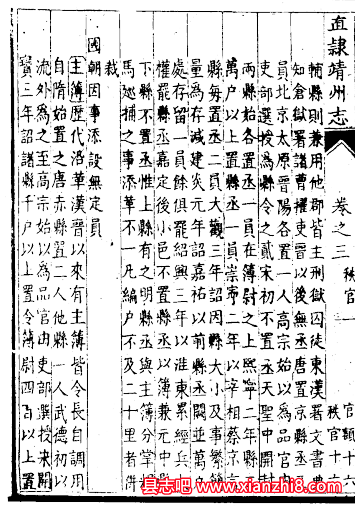 直隸靖州志 卷之三 秩官一
官類十六
秩官十六
輔縣則兼用他郡皆主刑獄囚徒東漢著文書典
知倉獄署諸曹權吏晉以後無丞唐置京縣丞
員北京太原晉陽各置一人高宗始以為品官由
吏部選授為縣令之貳宋初不置丞天聖中開封
兩縣始各置丞一員在簿尉之上熙寧二年縣
萬戶以上置縣丞一員崇寧二年以宰相蔡京
縣每置丞二員大觀三年詔縣大小及事繁簡
量為存減建炎元年詔嘉祐以前縣丞闕並萬
處存留一員餘俱罷紹興三年以淮東累經兵
權罷縣丞嘉定後小邑不置丞以簿兼元中
下縣不置丞惟上縣有之明縣丞與主簿分掌
馬巡捕之事添革不一凡編戶不及二十里者併
裁
國朝因事添設無定員
主簿歷代沿革漢晉以來有主簿皆令長自調用
自隋始置之唐赤縣置二人他縣一人武德初以
流外為之至高宗始以為品官由吏部選授宋開
寶三年詔諸縣千戶以上置令簿尉四百以上置
县志吧www.xianzhi8.com